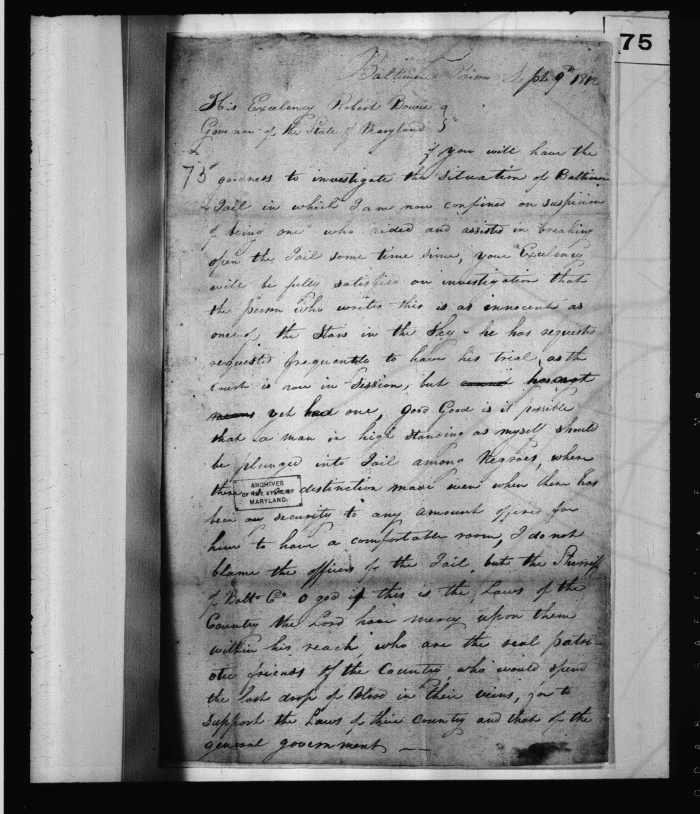 75
Baltimore Prison Sept 9th 1812
His Excelency Robert Bowie
Governor of the State of Maryland
if you will have the
75 goodness to investigate the situation of Baltimore
Jail in which I am now confined on suspicion
of being one who aided and assisted in breaking
open the Jail some time since, your Excelency
will be fully satisfied on investigation that
the person who writes this is as innocent as
one of the Stars in the Sky - he has requested
requested frequently to have his trial, as the
Court is now in Session, but has not
yet had one, good God is it possible
that a man in high standing as myself should
be plunged into Jail among Negroes, where
there is no distinction made even when there has
been security to any amount offered for
him to have a comfortable room, I do not
blame the officers of the Jail, but the Sherriff
of Balto Co O god if this is the Laws of the
Country the Lord have mercy upon them
within his reach, who are the real patri-
otic friends of the Country, who would spend
the last drop of Blood in their veins, for to
support the Laws of their Country and that of the
general government —
ARCHIVES
MARYLAND.